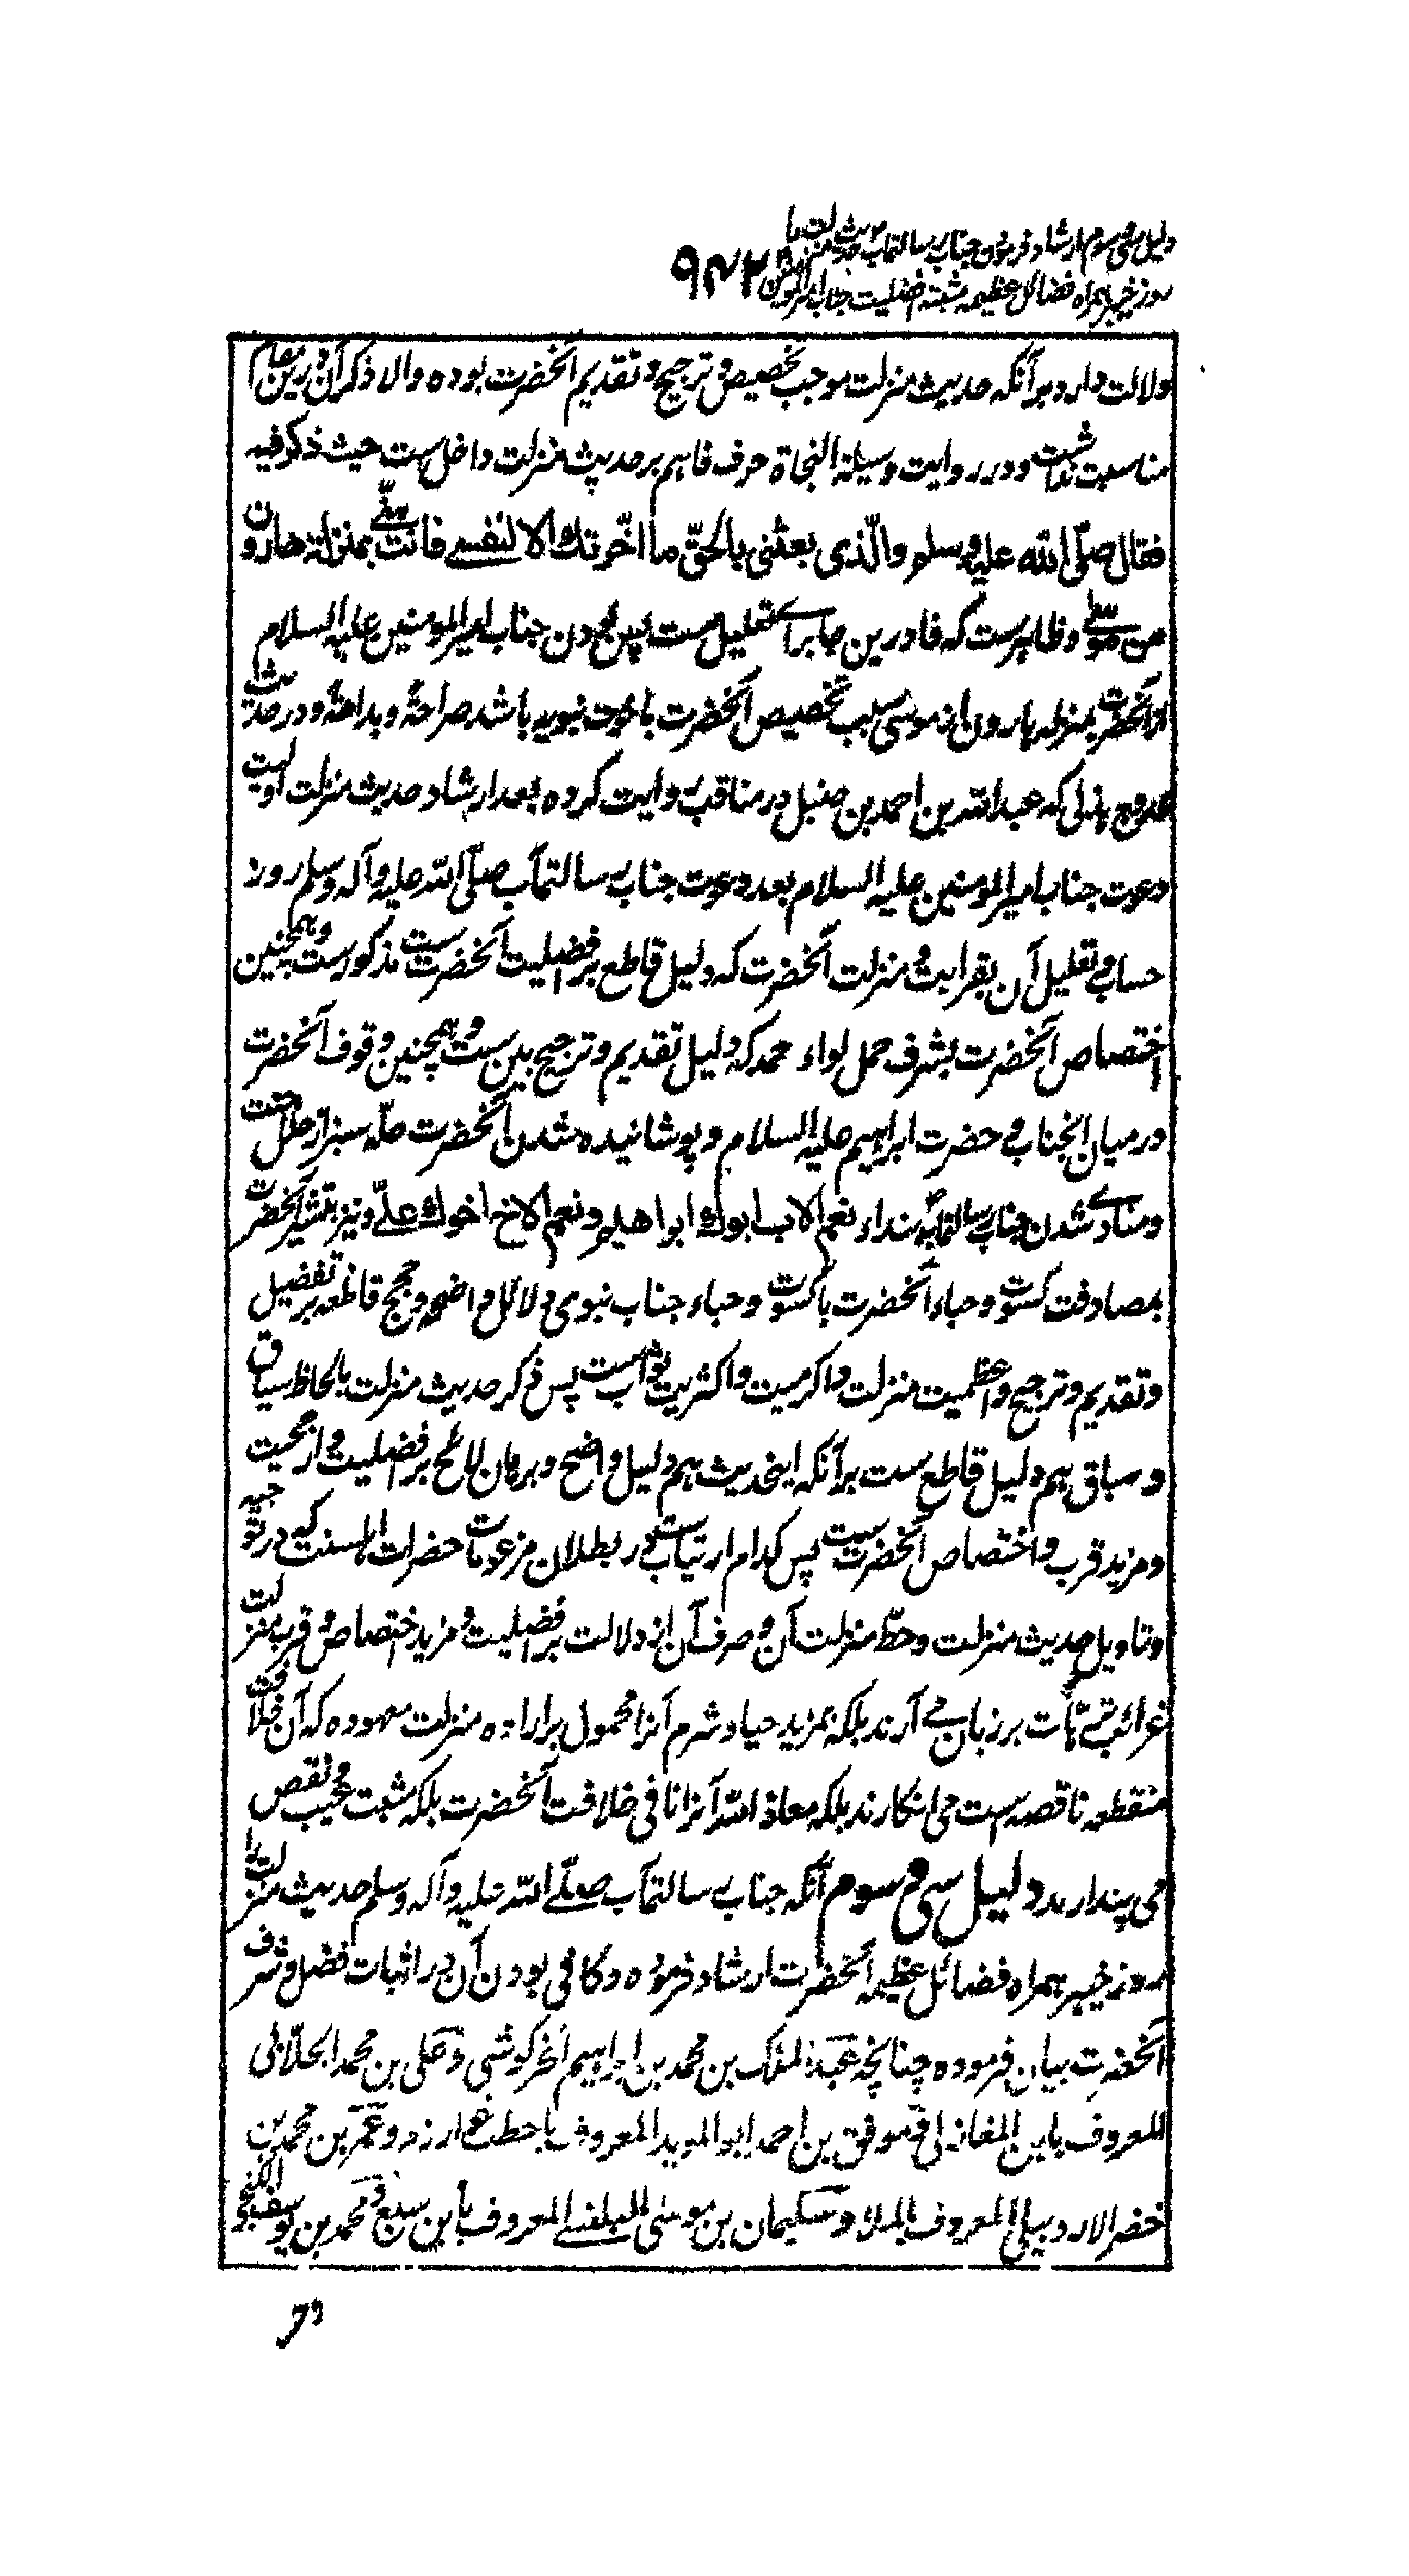 دلیل سی و سوم ارشاد فرمودن جناب رسالتمآب حدیث منزلت را
روز خیبر همراه فضائل عظیمه مثبته افضلیت جناب امیرالمومنین ۹۴۲
دلالت دارد برآنکه حدیث منزلت موجب تخصیص و ترجیح و تقدیم آنحضرت بوده والا ذکر آن درین مقام
مناسبت نداشت و در روایت وسیلة النجاة حرف فا هم بر حدیث منزلت داخل ست حیث ذکر فیه
فقال صلّی الله علیه وسلم والّذی بعثنی بالحقّ ما اخّرتك الا لنفسے فانت منّے بمنزلة هارون
من موسٰے و ظاهرست که فا درین جا براے تعلیل ست پس بودن جناب امیرالمومنین علیه السلام
از آنحضرت بمنزله هارون از موسی سبب تخصیص آنحضرت باخوت نبویه باشد صراحةً و بداهةً و در حدیث
محدوج هذلی که عبدالله بن احمد بن حنبل در مناقب روایت کرده بعد ارشاد حدیث منزلت اولیت
دعوت جناب امیرالمومنین علیه السلام بعد دعوت جناب رسالتمآب صلّی الله علیه وآله وسلم روز
حساب و تعلیل آن بقرابت و منزلت آنحضرت که دلیل قاطع بر افضلیت آنحضرت ست مذکورست و همچنین
اختصاص آنحضرت بشرف حمل لواء حمد که دلیل تقدیم و ترجیح بین ست و همچنین وقوف آنحضرت
درمیان آنجناب و حضرت ابراهیم علیه السلام و پوشانیده شدن آنحضرت حلّه سبز از حلل جنت
و منادے شدن جناب رسالتمآب بنداء نعم الاب ابوك ابراهیم و نعم الاخ اخوك علیّ و نیز تبشیر آنحضرت
بمصادفت کسوت و حباء آنحضرت با کسوت و حباء جناب نبوی دلائل واضحه و حجج قاطعه بر تفضیل
و تقدیم و ترجیح و اعظمیت منزلت و اکرمیت و اکثریت ثواب ست پس ذکر حدیث منزلت بالحاظ سیاق
و سباق هم دلیل قاطع ست برآنکه اینحدیث هم دلیل واضح و برهان لائح بر افضلیت و ارجحیت
و مزید قرب و اختصاص آنحضرت ست پس کدام ارتیاب ست در بطلان مزعومات حضرات اهلسنت که در توجیه
و تاویل حدیث منزلت و حطّ منزلت آن و صرف آن از دلالت بر افضلیت و مزید اختصاص و قرب منزلت
غرائب ترّهات بر زبان مے آرند بلکه بمزید حیا و شرم آنرا محمول بر اراده منزلت معهوده که آن خلافت
منقطعه ناقصه ست می انگارند بلکه معاذ الله آنرا نافی خلافت آنحضرت بلکه مثبت و نقص
می پندارند دلیل سی و سوم آنکه جناب رسالتمآب صلّے الله علیه وآله وسلم حدیث منزلت را
روز خیبر همراه فضائل عظیمه آنحضرت ارشاد فرموده و کافی بودن آن در اثبات فضل و شرف
آنحضرت بیان فرموده چنانچه عبد الملک بن محمد بن ابراهیم الخرکوشی و علی بن محمد الجلّابی
المعروف بابن المغازلی و موفق بن احمد ابو المؤید المعروف باخطب خوارزم و عمر بن محمد بن
خضر الاردبیلی المعروف بالملا و سلیمان بن موسٰی البلنسے المعروف بابن سبع و محمد بن یوسف الکنجی